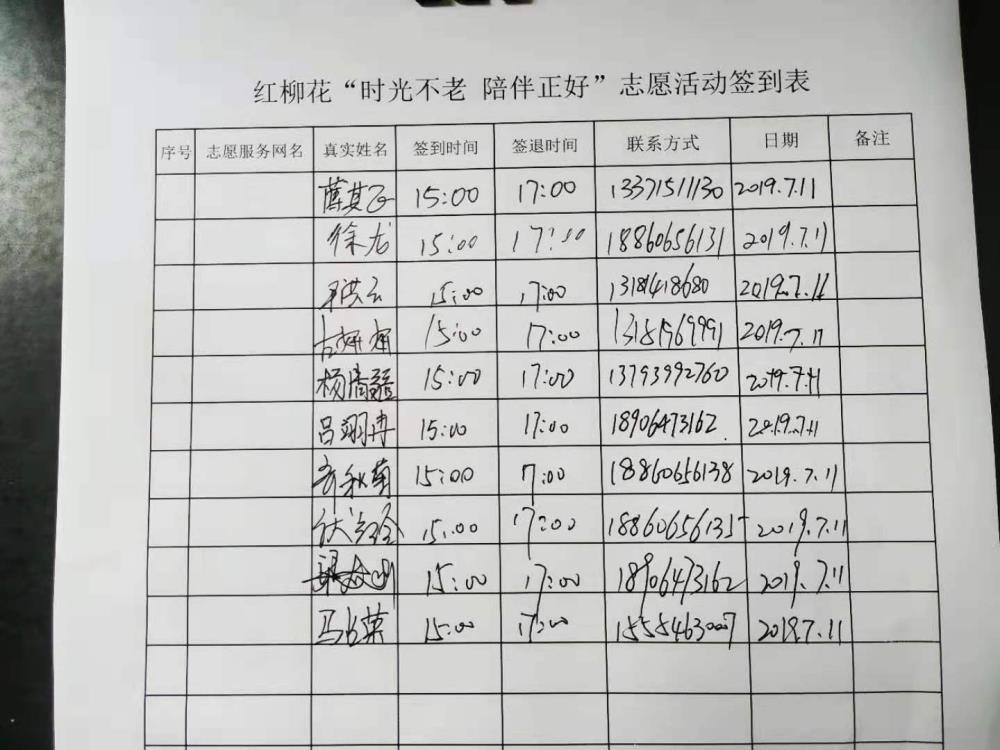 红柳花“时光不老 陪伴正好”志愿活动签到表
序号 志愿服务网名 真实姓名 签到时间 签退时间 联系方式 日期 备注
15:00 17:00 13371511130 2019.7.11
徐龙 15:00 17:00 18860656131 2019.7.11
15:00 17:00 13181418680 2019.7.11
15:00 17:00 2019.7.11
15:00 17:00 13793992760 2019.7.11
吕翊冉 15:00 17:00 18906473162 2019.7.11
齐秋菊 15:00 7:00 18860656138 2019.7.11
15:00 17:00 18860656135 2019.7.11
15:00 17:00 18906473162 2019.7.11
15:00 17:00 15554630007 2019.7.11